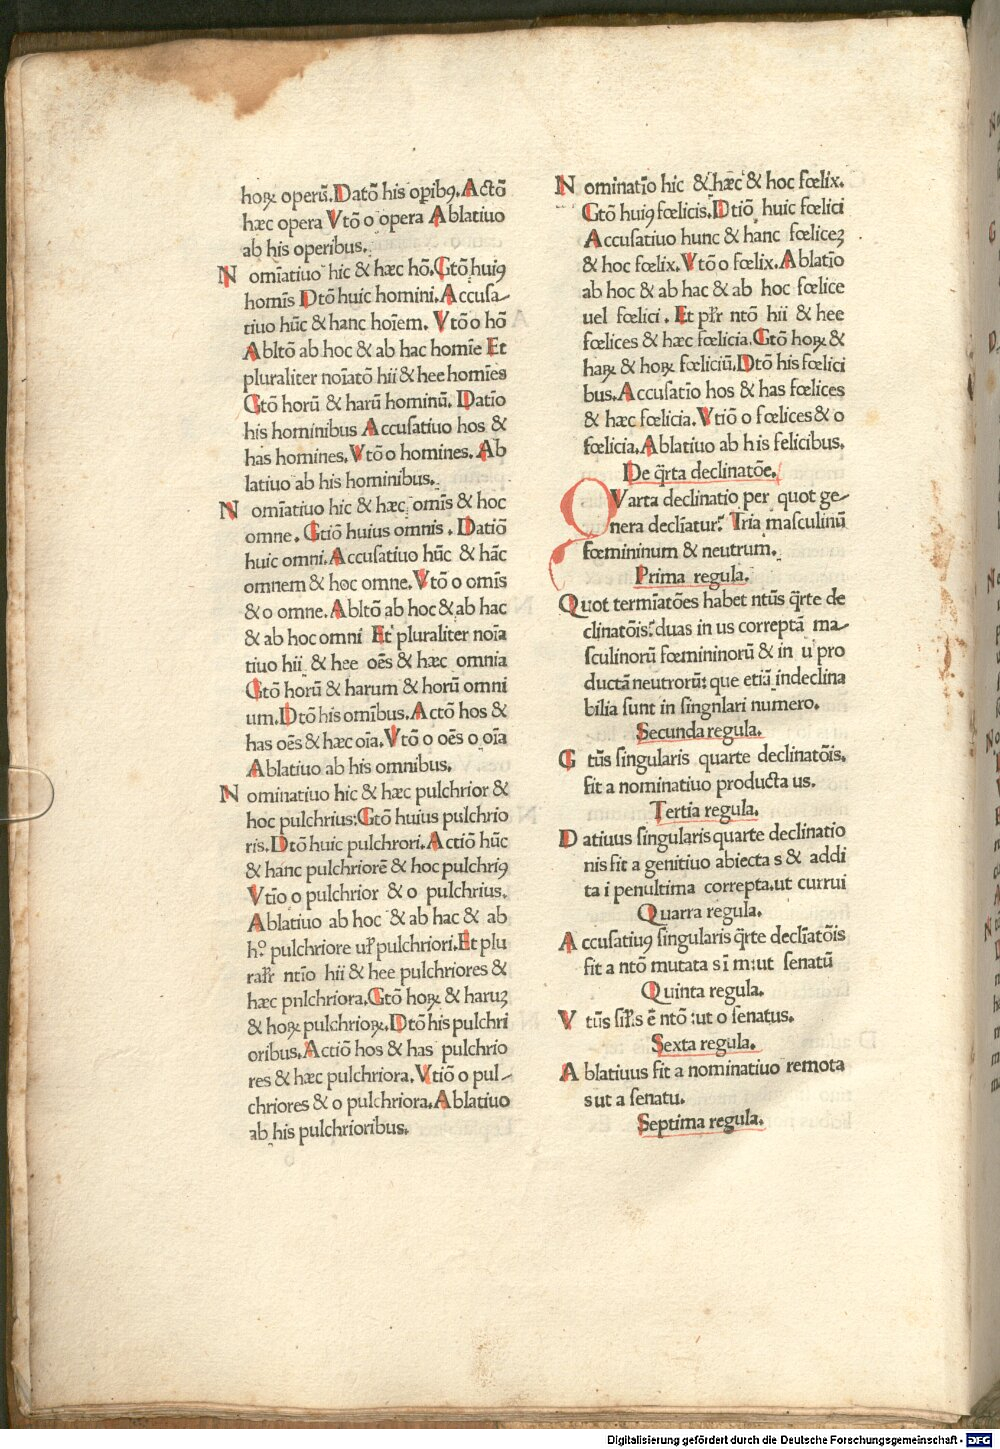 hoꝝ operū. Datō his opibꝰ. Actō
hæc opera Vtō o opera Ablatiuo
ab his operibus.
Nomīatiuo hic & hæc hō. Gtō huiꝰ
homīs Dtō huic homini. Accusa-
tiuo hūc & hanc hoīem. Vtō o hō
Abltō ab hoc & ab hac homīe Et
pluraliter noīatō hii & hee homīes
Gtō horū & harū hominū. Datīo
his hominibus Accusatiuo hos &
has homines. Vtō o homines. Ab
latiuo ab his hominibus.
Nomīatiuo hic & hæc omīs & hoc
omne. Gtiō huius omnis. Datiō
huic omni. Accusatiuo hūc & hāc
omnem & hoc omne. Vtō o omīs
& o omne. Abltō ab hoc & ab hac
& ab hoc omni Et pluraliter noīa
tiuo hii & hee oēs & hæc omnia
Gtō horū & harum & horū omni
um. Dtō his omībus. Actō hos &
has oēs & hæc oīa. Vtō o oēs o oīa
Ablatiuo ab his omnibus.
Nominatiuo hic & hæc pulchrior &
hoc pulchrius: Gtō huius pulchrio
ris. Dtō huic pulchrori. Actiō hūc
& hanc pulchriorē & hoc pulchriꝰ
Vtīo o pulchrior & o pulchrius.
Ablatiuo ab hoc & ab hac & ab
h° pulchriore uł pulchriori. Et plu
rałr ntīo hii & hee pulchriores &
hæc pnlchriora. Gtō hoꝝ & haruꝫ
& hoꝝ pulchrioꝝ. Dtō his pulchri
oribus. Actiō hos & has pulchrio
res & hæc pulchriora. Vtiō o pul-
chriores & o pulchriora. Ablatiuo
ab his pulchrioribus.
Nominatīo hic & hæc & hoc fœlix.
Gtō huiꝰ fœlicis. Dtiō huic fœlici
Accusatiuo hunc & hanc fœliceꝫ
& hoc fœlix. Vtō o fœlix. Ablatīo
ab hoc & ab hac & ab hoc fœlice
uel fœlici. Et płr ntō hii & hee
fœlices & hæc fœlicia. Gtō hoꝝ &
haꝝ & hoꝝ fœliciū. Dtō his fœlici
bus. Accusatīo hos & has fœlices
& hæc fœlicia. Vtiō o fœlices & o
fœlicia. Ablatiuo ab his felicibus.
De q̄rta declinatōe.
QVarta declinatio per quot ge-
nera declīatur: Tria masculinū
fœmininum & neutrum.
Prima regula.
Quot termīatōes habet ntūs q̄rte de
clinatōis: duas in us correptā ma-
sculinorū fœmininorū & in u pro
ductā neutrorū: que etiā indeclina
bilia sunt in singnlari numero.
Secunda regula.
Gtūs singularis quarte declinatōis.
fit a nominatiuo producta us.
Tertia regula.
Datiuus singularis quarte declinatio
nis fit a genitiuo abiecta s & addi
ta i penultima correpta. ut currui
Quarra regula.
Accusatiuꝰ singularis q̄rte declīatōis
fit a ntō mutata s ī m: ut senatū
Quinta regula.
Vtūs siłis ē ntō: ut o senatus.
Sexta regula.
Ablatiuus fit a nominatiuo remota
s ut a senatu.
Septima regula.
Digitalisierung gefördert durch die Deutsche Forschungsgemeinschaft - DFG